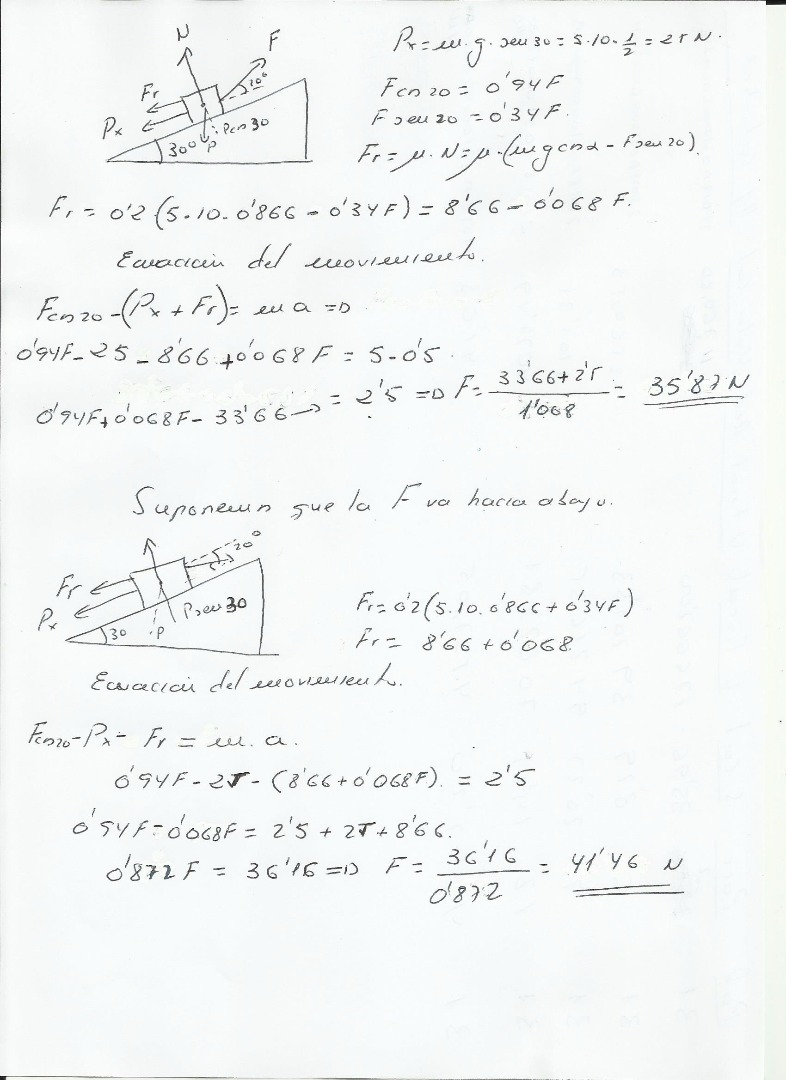 N
F
20º
Fr
Px
Pcos30
P
30º
Px = m.g.sen30 = 5.10.1/2 = 25 N.
Fcos20 = 0'94F
Fsen20 = 0'34F.
Fr = μ.N = μ.(mgcosα - Fsen20)
Fr = 0'2 (5.10.0'866 - 0'34F) = 8'66 - 0'068 F.
Ecuación del movimiento.
Fcos20 - (Px + Fr) = m a =>
0'94F - 25 - 8'66 + 0'068 F = 5.0'5.
0'94F + 0'068F - 33'66 = 2'5 => F = 33'66 + 2'5 / 1'068 = 35'87 N
Suponemos que la F va hacia abajo.
20º
Fr
Px
Psen30
P
30
Fr = 0'2 (5.10.0'866 + 0'34F)
Fr = 8'66 + 0'068
Ecuación del movimiento.
Fcos20 - Px - Fr = m.a.
0'94F - 25 - (8'66 + 0'068F) = 2'5
0'94F - 0'068F = 2'5 + 25 + 8'66.
0'872 F = 36'16 => F = 36'16 / 0'872 = 41'46 N